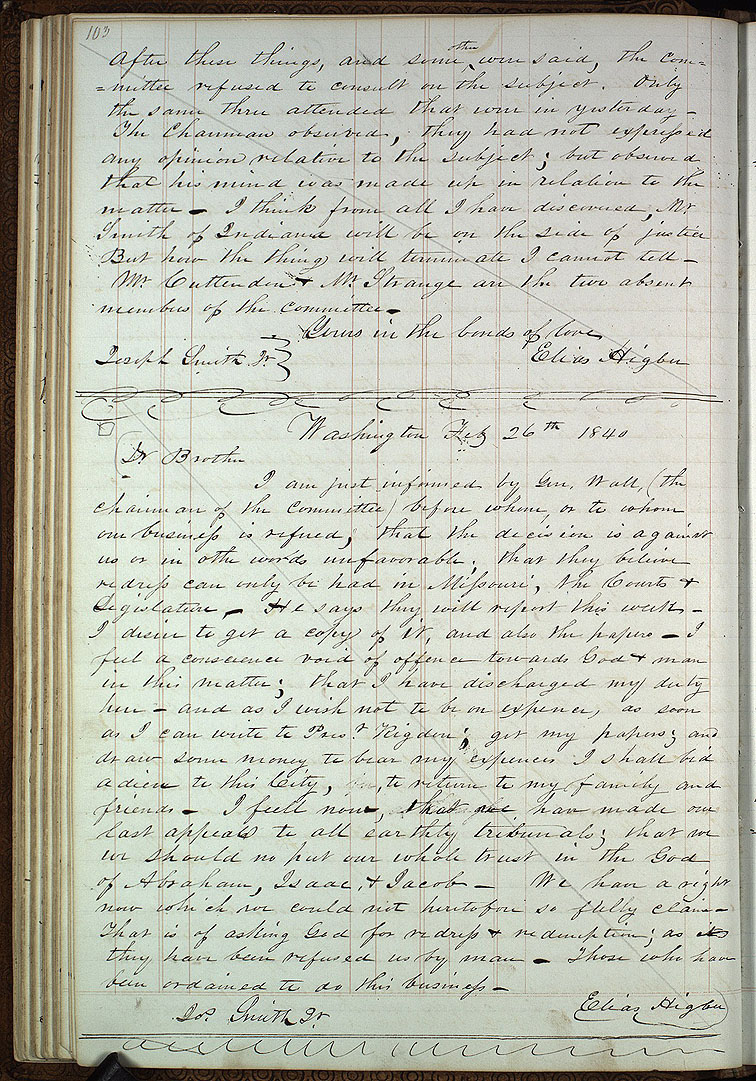 103
After these things, and some other were said, the com=
=mittee refused to consult on the subject. Only
the same three attended that were in yesterday –
The Chairman observed, they had not expressed
any opinion relative to the subject; but observed
that his mind was made up in relation to the
matter – I think from all I have discovered, Mr
Smith of Indiana will be on the side of justice
But how the thing will terminate I cannot tell –
Mr Cuttendon & Mr Strange are the two absent
members of the committee –
Yours in the bonds of love
Joseph Smith Jr. Elias Higbee
Washington Feb 26th 1840
Dr Brother
I am just informed by Gen. Wall, (the
chairman of the committee) before whom, or to whom
our business is refered; that the decision is against
us or in othe words unfavorable; that they believe
redress can only be had in Missouri, the Courts &
Legislature – He says they will report this week –
I desire to get a copy of it, and also the papers – I
feel a conscience void of offence towards God & man
in this matter; that I have discharged my duty
here – and as I wish not to be on expence, as soon
as I can write to Prest Rigdon; get my papers; and
draw some money to bear my expences I shall bid
adieu to this City, to return to my family and
friends – I feell now, that we have made our
last appeals to all earthly tribunals; that we
we should no put our whole trust in the God
of Abraham, Isaac, & Jacob – We have a right
now which we could not heretofore so fully claim –
That is of asking God for redress & redemption; as
they have been refused us by man – Those who have
been ordained to do this business –
Elias Higbee
Jos. Smith Jr.